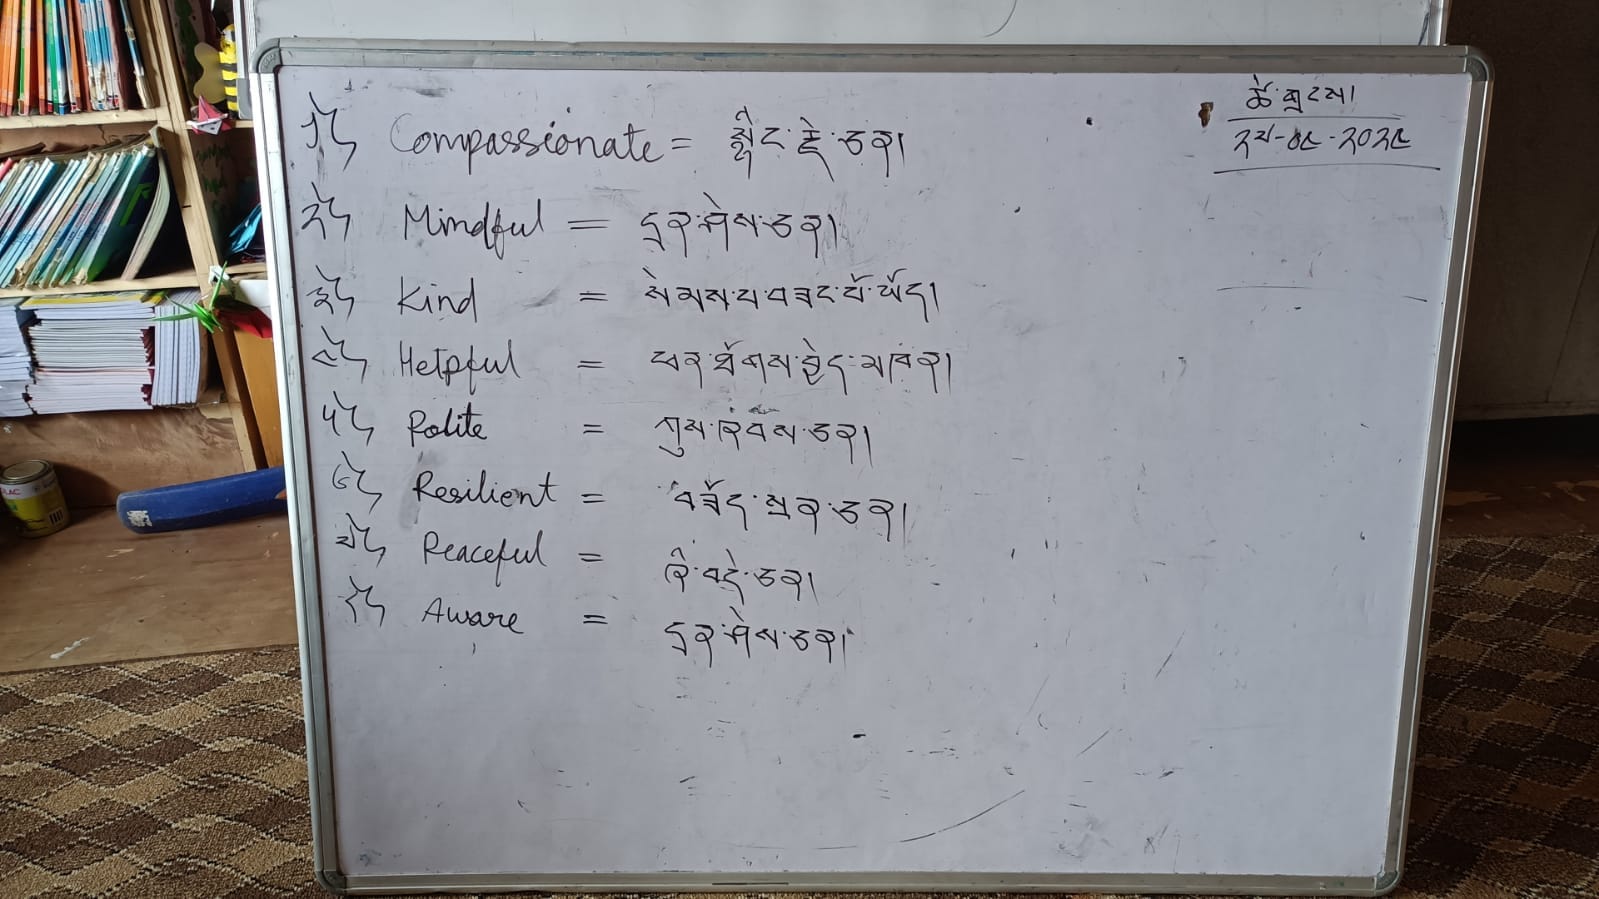 ཚེས་གྲངས།
༢༧-༠༨-༢༠༢༤
༡༽ Compassionate = སྙིང་རྗེ་ཅན།
༢༽ Mindful = དྲན་ཤེས་ཅན།
༣༽ Kind = སེམས་པ་བཟང་པོ་ཡོད།
༤༽ Helpful = ཕན་ཐོགས་བྱེད་མཁན།
༥༽ Polite = གུས་ཞབས་ཅན།
༦༽ Resilient = བཟོད་སྲན་ཅན།
༧༽ Peaceful = ཞི་བདེ་ཅན།
༨༽ Aware = དྲན་ཤེས་ཅན།